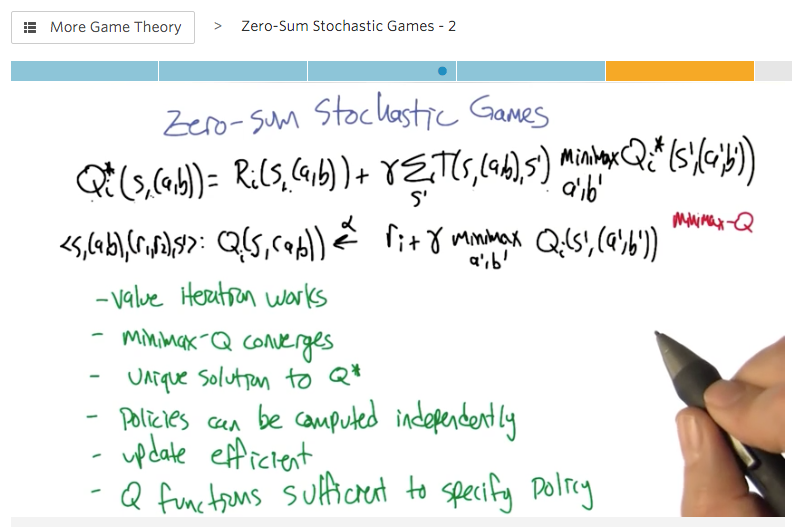 More Game Theory > Zero-Sum Stochastic Games - 2
Zero-sum Stochastic Games
Qi*(s,(a,b)) = Ri(s,(a,b)) + γ Σs' T(s,(a,b),s') minimax a',b' Qi*(s',(a',b'))
<s,(a,b),(r1,r2),s'>: Qi(s,(a,b)) ←α ri + γ minimax a',b' Qi(s',(a',b'))
minimax-Q
- value iteration works
- minimax-Q converges
- unique solution to Q*
- policies can be computed independently
- update efficient
- Q functions sufficient to specify policy